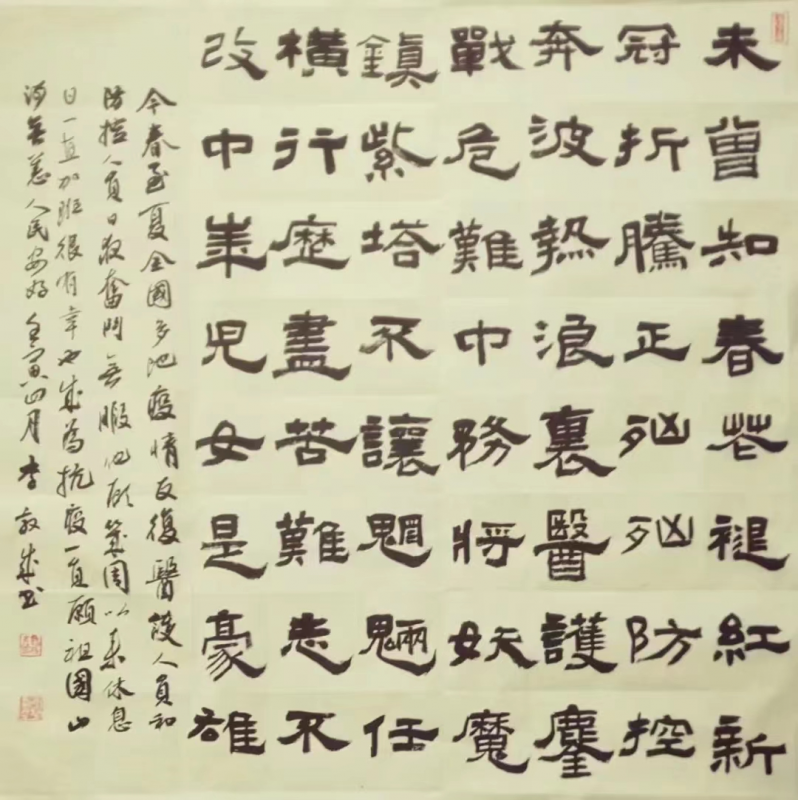 未曾知春花褪紅新
冠折騰正汹汹防控
奔波熱浪裏醫護鏖
戰危難中務將妖魔
鎮紫塔不讓魍魎任
橫行歷盡苦難志不
改中華兒女是豪雄
今春至夏全國多地疫情反復醫護人員和
防控人員日夜奮鬥無暇他顾以来休息
日一直加班很有幸也成為抗疫一員願祖國山
河無恙人民安好壬寅四月李敦成书